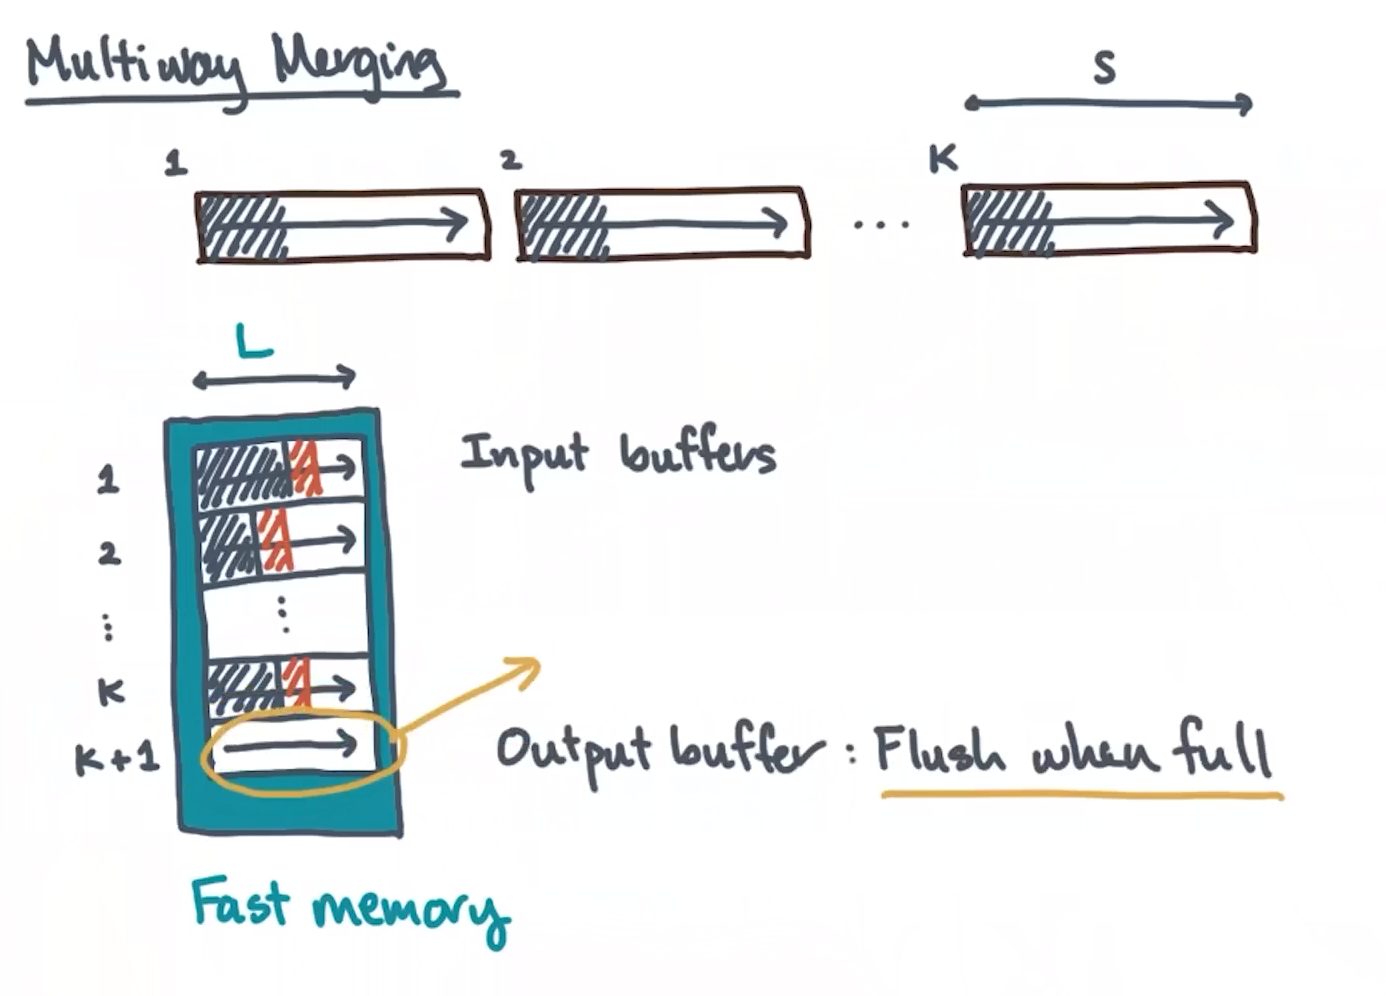 Multiway Merging
S
1
2
... K
L
1
Input buffers
2
⋮
K
K+1
Output buffer : Flush when full
Fast memory